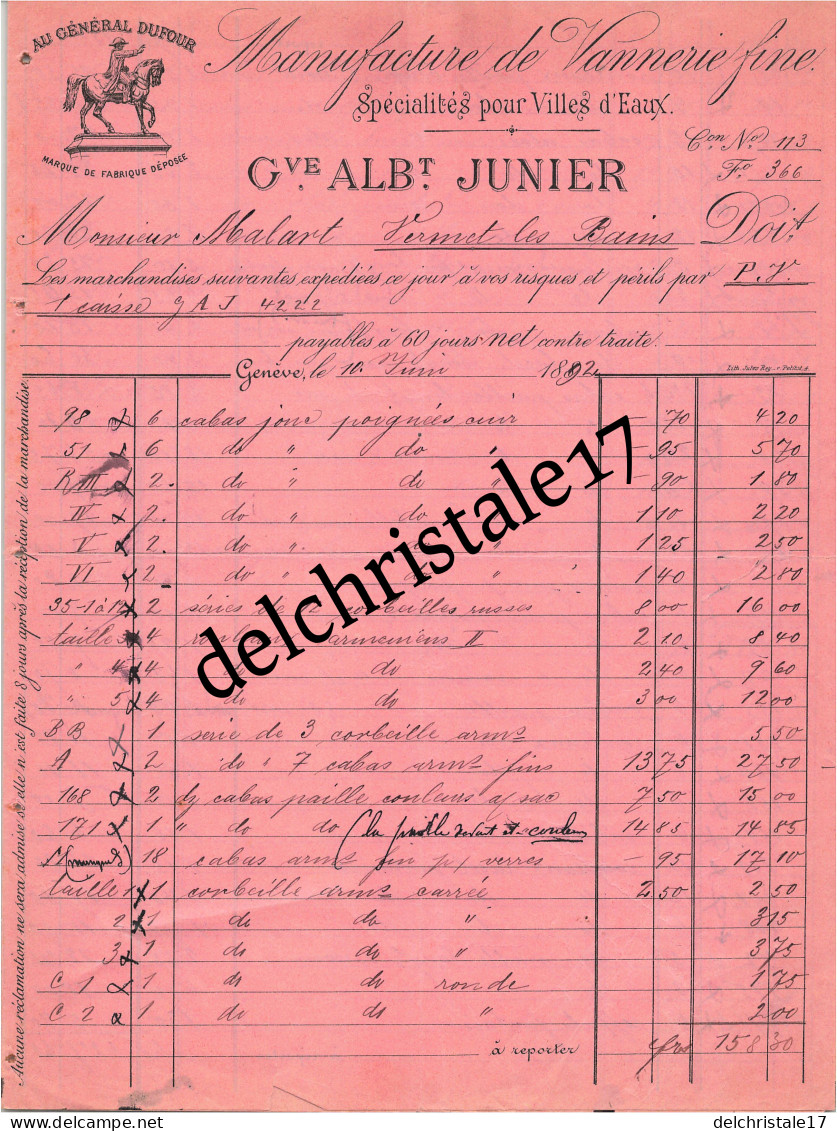 AU GÉNÉRAL DUFOUR
MARQUE DE FABRIQUE DÉPOSÉE
Manufacture de Vannerie fine.
Spécialités pour Villes d'Eaux.
Con No. 113
Fo. 366
GVE ALBT. JUNIER
Monsieur Malart Vernet les Bains Doit
Les marchandises suivantes expédiées ce jour à vos risques et périls par P.V.
1 caisse GAJ 4222
payables à 60 jours net contre traite.
Genève, le 10. Juin 1892
Lith. Jules Rey
Aucune réclamation ne sera admise si elle n'est faite 8 jours après la réception de la marchandise.
98 x 6 cabas jonc poignées cuir — 70 4 20
51 x 6 do " do " — 95 5 70
R III x 2. do " do " — 90 1 80
IV x 2. do " do 1 10 2 20
V x 2. do " do 1 25 2 50
VI 2 do " do " 1 40 2 80
35-1 à 12 x 2 séries de 12 corbeilles russes 8 00 16 00
taille 3 x 4 arméniens II 2 10 8 40
" 4 x 4 do do 2 40 9 60
" 5 x 4 do do 3 00 12 00
BB x 1 serie de 3 corbeille arms 5 50
A x 2 do " 7 cabas arms fins 13 75 27 50
168 x 2 dz cabas paille couleurs a/ sac 7 50 15 00
171 x 1 " do do (la couleurs 14 85 14 85
(manque) 18 cabas arms fin p/ verres — 95 17 10
taille 1 x 1 corbeille arms carrée 2 50 2 50
2 x 1 do do " 3 15
3 x 1 do do " 3 75
C 1 x 1 do do ronde 1 75
C 2 x 1 do do " 2 00
à reporter frs 158 30
delchristale17
delcampe.net
delchristale17